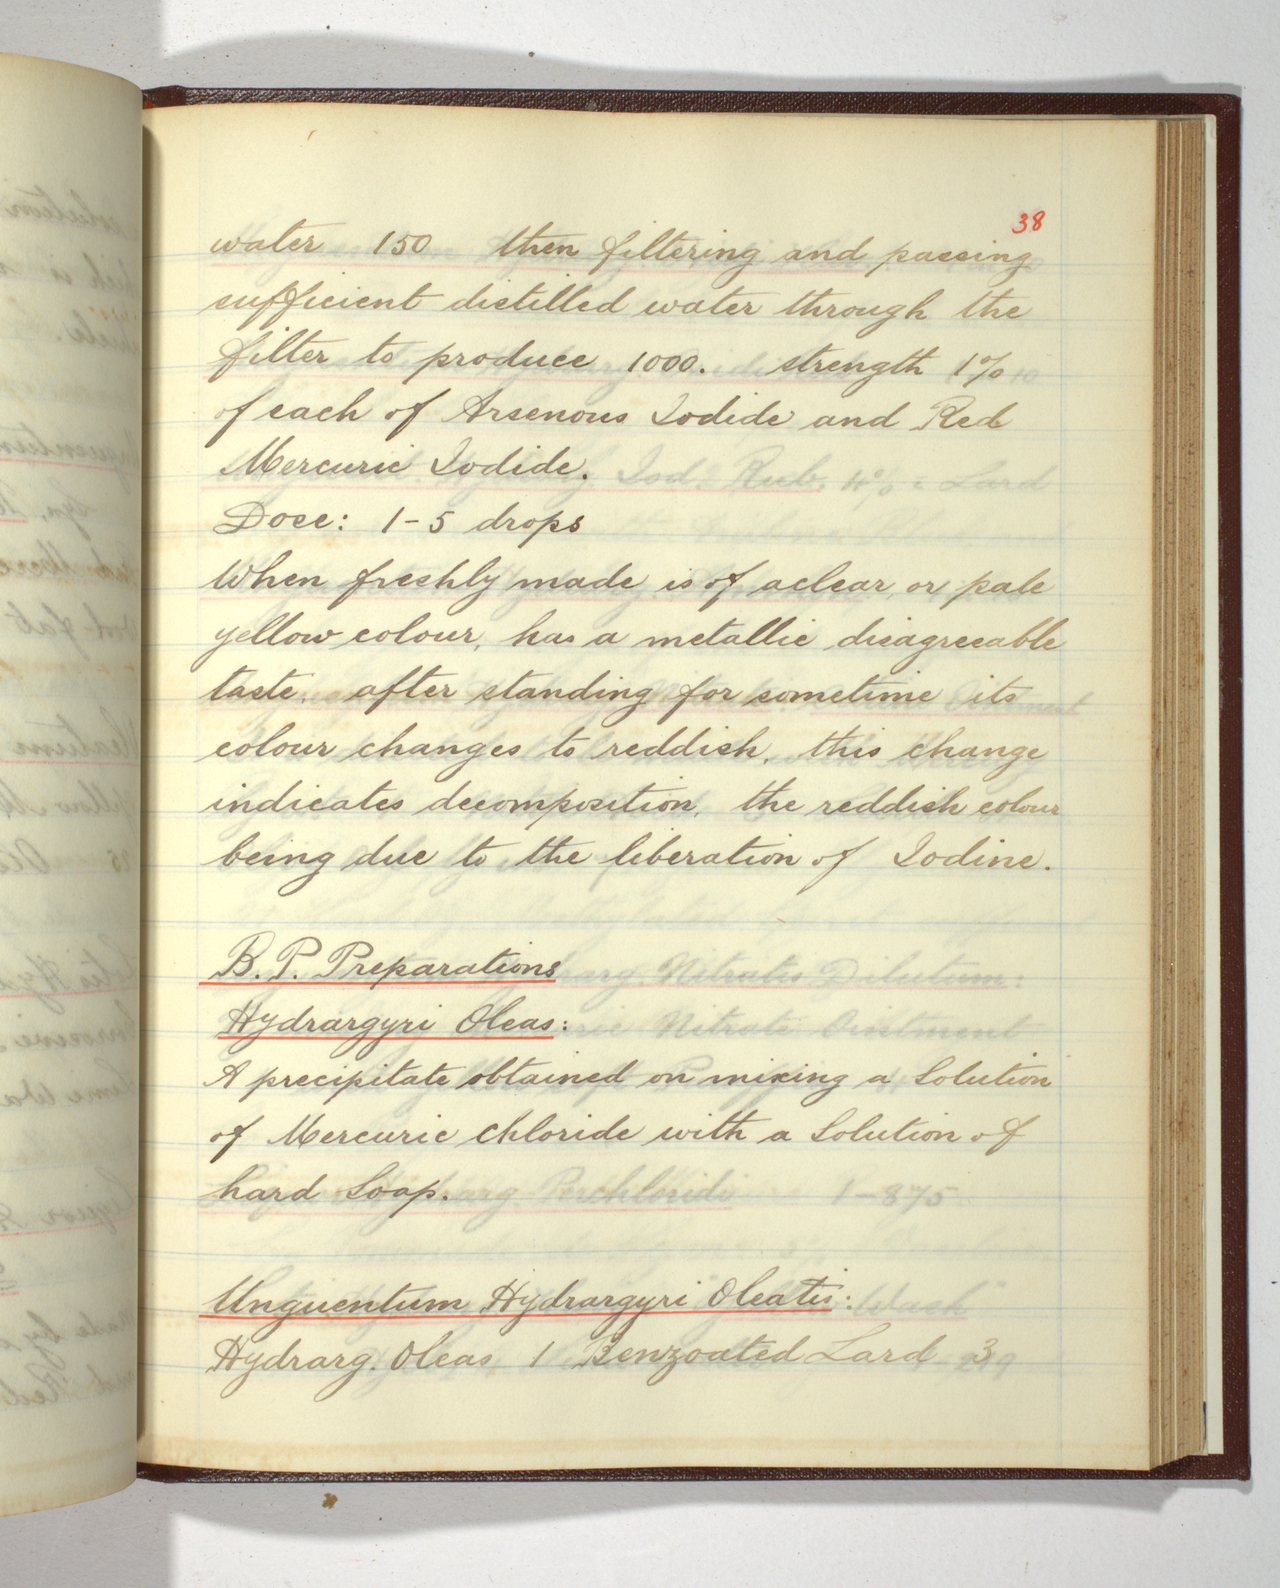 38
water 150 then filtering and passing
sufficient distilled water through the
filter to produce 1000. strength 1%
of each of Arsenous Iodide and Red
Mercuric Iodide.
Dose: 1-5 drops
When freshly made is of a clear or pale
yellow colour, has a metallic disagreeable
taste. after standing for sometime its
colour changes to reddish, this change
indicates decomposition, the reddish colour
being due to the liberation of Iodine.
B.P. Preparations
Hydrargyri Oleas:
A precipitate obtained on mixing a Solution
of Mercuric Chloride with a Solution of
hard Soap.
Unguentum Hydrargyri Oleatis:
Hydrarg. Oleas 1 Benzoated Lard 3